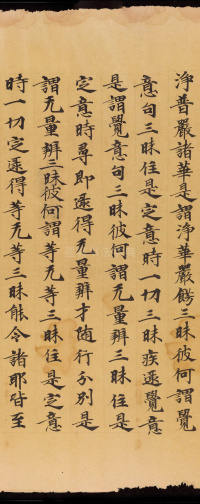 淨普嚴諸華是謂淨華嚴餝三昧彼何謂覺
意句三昧住是定意時一切三昧疾逮覺意
是謂覺意句三昧彼何謂无量辨三昧住是
定意時尋即逮得无量辨才随行分别是
謂无量辨三昧彼何謂等无等三昧住是定意
時一切定逮得等无等三昧能令諸耶皆至